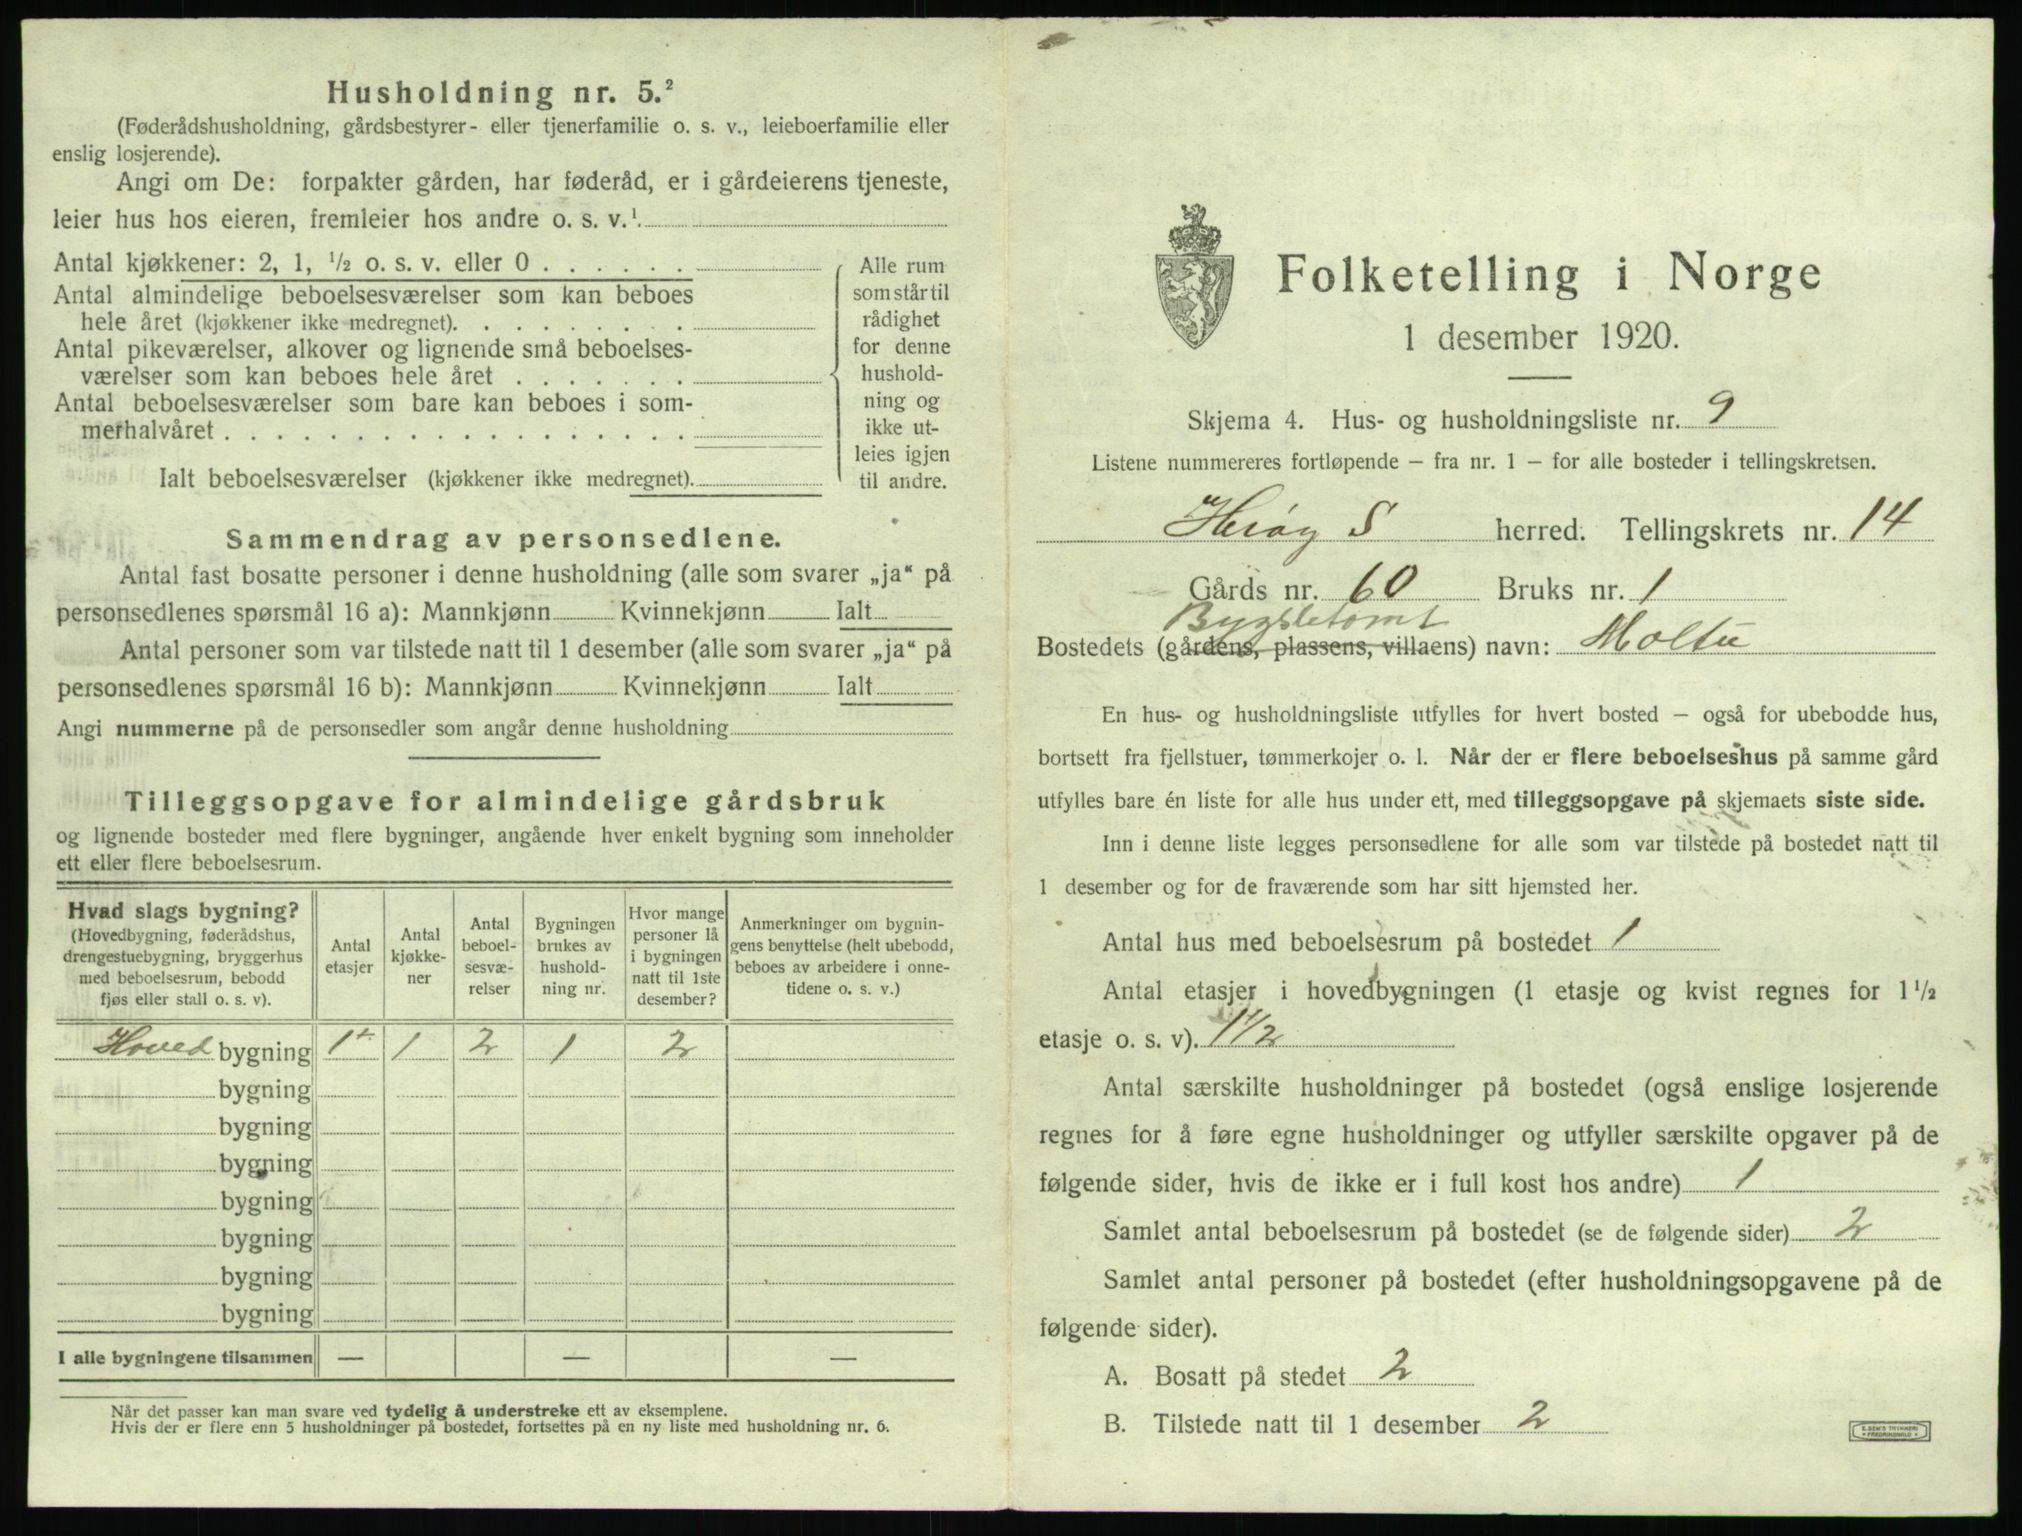 Husholdning nr. 5.²
(Føderådshusholdning, gårdsbestyrer- eller tjenerfamilie o. s. v., leieboerfamilie eller
enslig losjerende).
Angi om De: forpakter gården, har føderåd, er i gårdeierens tjeneste,
leier hus hos eieren, fremleier hos andre o. s. v.¹
Antal kjøkkener: 2, 1, ½ o. s. v. eller 0
Antal almindelige beboelsesværelser som kan beboes
hele året (kjøkkener ikke medregnet).
Antal pikeværelser, alkover og lignende små beboelses-
værelser som kan beboes hele året
Antal beboelsesværelser som bare kan beboes i som-
merhalvåret
Ialt beboelsesværelser (kjøkkener ikke medregnet).
Alle rum
som står til
rådighet
for denne
hushold-
ning og
ikke ut-
leies igjen
til andre.
Sammendrag av personsedlene.
Antal fast bosatte personer i denne husholdning (alle som svarer „ja“ på
personsedlenes spørsmål 16 a): Mannkjønn Kvinnekjønn Ialt
Antal personer som var tilstede natt til 1 desember (alle som svarer „ja“ på
personsedlenes spørsmål 16 b): Mannkjønn Kvinnekjønn Ialt
Angi nummerne på de personsedler som angår denne husholdning
Tilleggsopgave for almindelige gårdsbruk
og lignende bosteder med flere bygninger, angående hver enkelt bygning som inneholder
ett eller flere beboelsesrum.
Hvad slags bygning?
(Hovedbygning, føderådshus,
drengestuebygning, bryggerhus
med beboelsesrum, bebodd
fjøs eller stall o. s. v).
Antal
etasjer
Antal
kjøkke-
ner
Antal
beboel-
sesvæ-
relser
Bygningen
brukes av
hushold-
ning nr.
Hvor mange
personer lå
i bygningen
natt til 1ste
desember?
Anmerkninger om bygnin-
gens benyttelse (helt ubebodd,
beboes av arbeidere i onne-
tidene o. s. v.)
Hoved bygning 1 1 2 1 2
bygning
bygning
bygning
bygning
bygning
bygning
bygning
I alle bygningene tilsammen — — —
Når det passer kan man svare ved tydelig å understreke ett av eksemplene.
Hvis der er flere enn 5 husholdninger på bostedet, fortsettes på en ny liste med husholdning nr. 6.
Folketelling i Norge
1 desember 1920.
Skjema 4. Hus- og husholdningsliste nr. 9
Listene nummereres fortløpende — fra nr. 1 — for alle bosteder i tellingskretsen.
Herøy S herred. Tellingskrets nr. 14
Gårds nr. 60 Bruks nr. 1
Bygsletomt
Bostedets (gårdens, plassens, villaens) navn: Moltu
En hus- og husholdningsliste utfylles for hvert bosted — også for ubebodde hus,
bortsett fra fjellstuer, tømmerkojer o. l. Når der er flere beboelseshus på samme gård
utfylles bare én liste for alle hus under ett, med tilleggsopgave på skjemaets siste side.
Inn i denne liste legges personsedlene for alle som var tilstede på bostedet natt til
1 desember og for de fraværende som har sitt hjemsted her.
Antal hus med beboelsesrum på bostedet 1
Antal etasjer i hovedbygningen (1 etasje og kvist regnes for 1½
etasje o. s. v). 1½
Antal særskilte husholdninger på bostedet (også enslige losjerende
regnes for å føre egne husholdninger og utfyller særskilte opgaver på de
følgende sider, hvis de ikke er i full kost hos andre) 1
Samlet antal beboelsesrum på bostedet (se de følgende sider) 2
Samlet antal personer på bostedet (efter husholdningsopgavene på de
følgende sider).
A. Bosatt på stedet 2
B. Tilstede natt til 1 desember 2
E. SEM'S TRYKKERI
FREDRIKSHALD